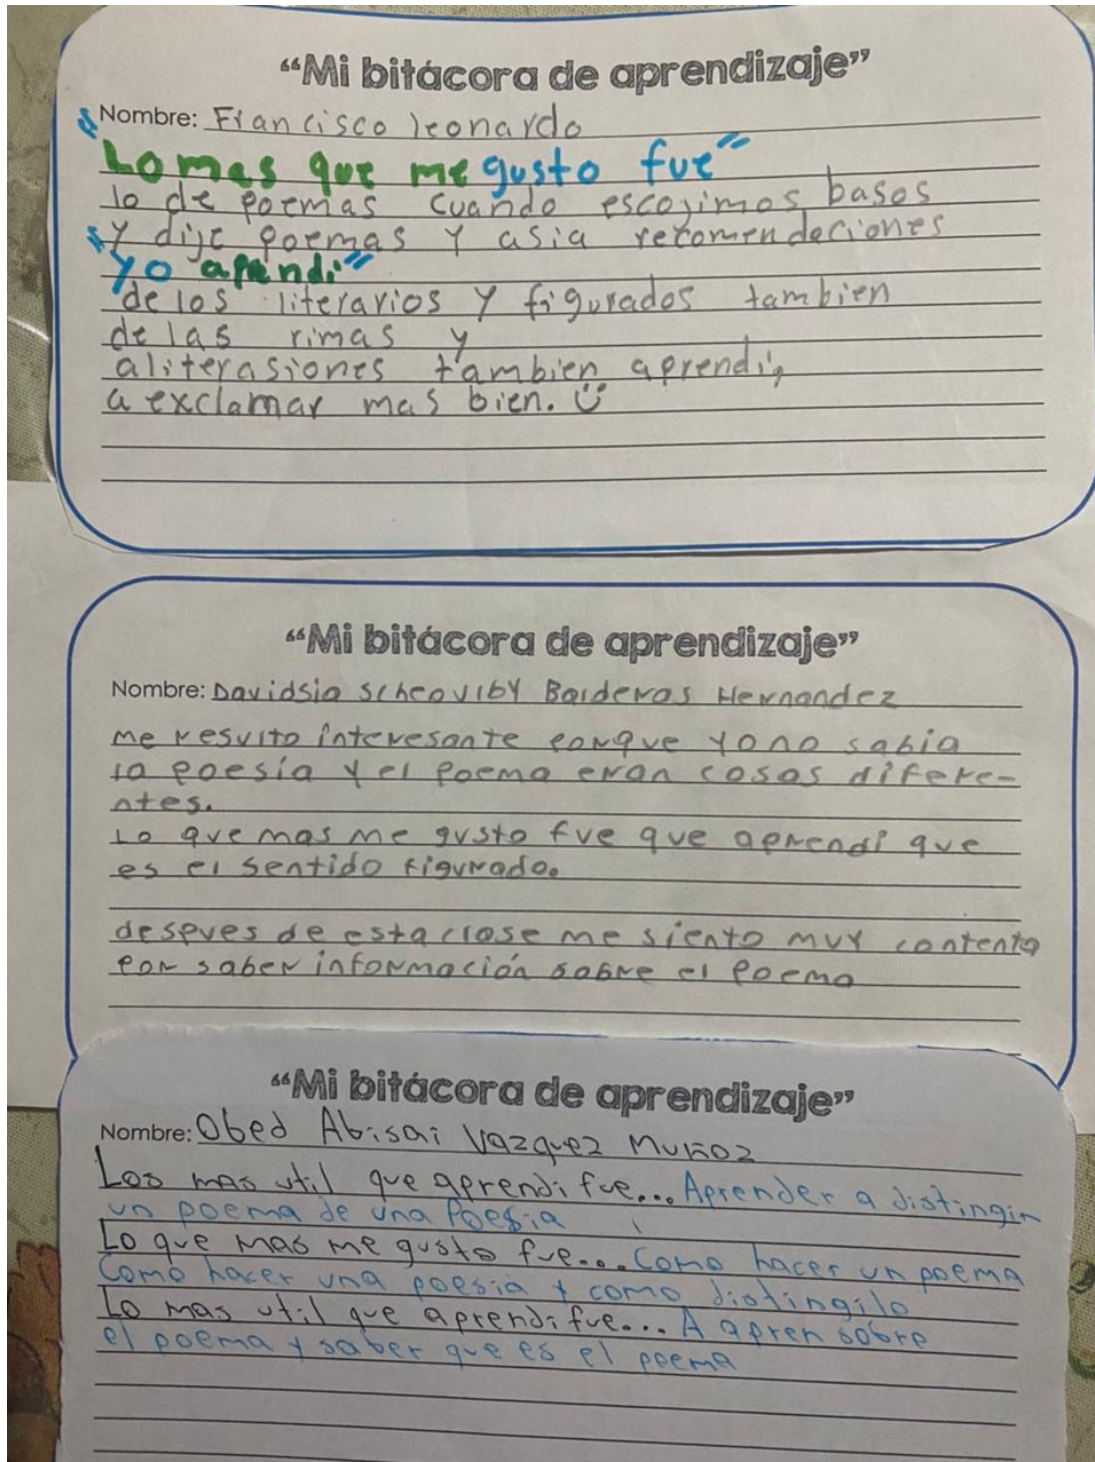 “Mi bitácora de aprendizaje”
Nombre: Francisco leonardo
"Lo mas que me gusto fue"
lo de poemas cuando escojimos basos
y dije poemas y asia recomendeciones
"yo aprendi"
de los literarios y figurados tambien
de las rimas y
aliterasiones tambien aprendi,
a exclamar mas bien.
“Mi bitácora de aprendizaje”
Nombre: Davidsia Scheoviby Balderas Hernandez
me resulto interesante porque yo no sabia
la poesía y el poema eran cosas difere-
ntes.
Lo que mas me gusto fue que aprendi que
es el sentido figurado.
despues de esta clase me siento muy contento
por saber información sobre el poema
“Mi bitácora de aprendizaje”
Nombre: Obed Abisai Vazquez Muñoz
Los mas util que aprendi fue... Aprender a distingir
un poema de una Poesia
Lo que mas me gusto fue... Como hacer un poema
Como hacer una poesia y como distingilo
Lo mas util que aprendi fue... A apren sobre
el poema y saber que es el poema